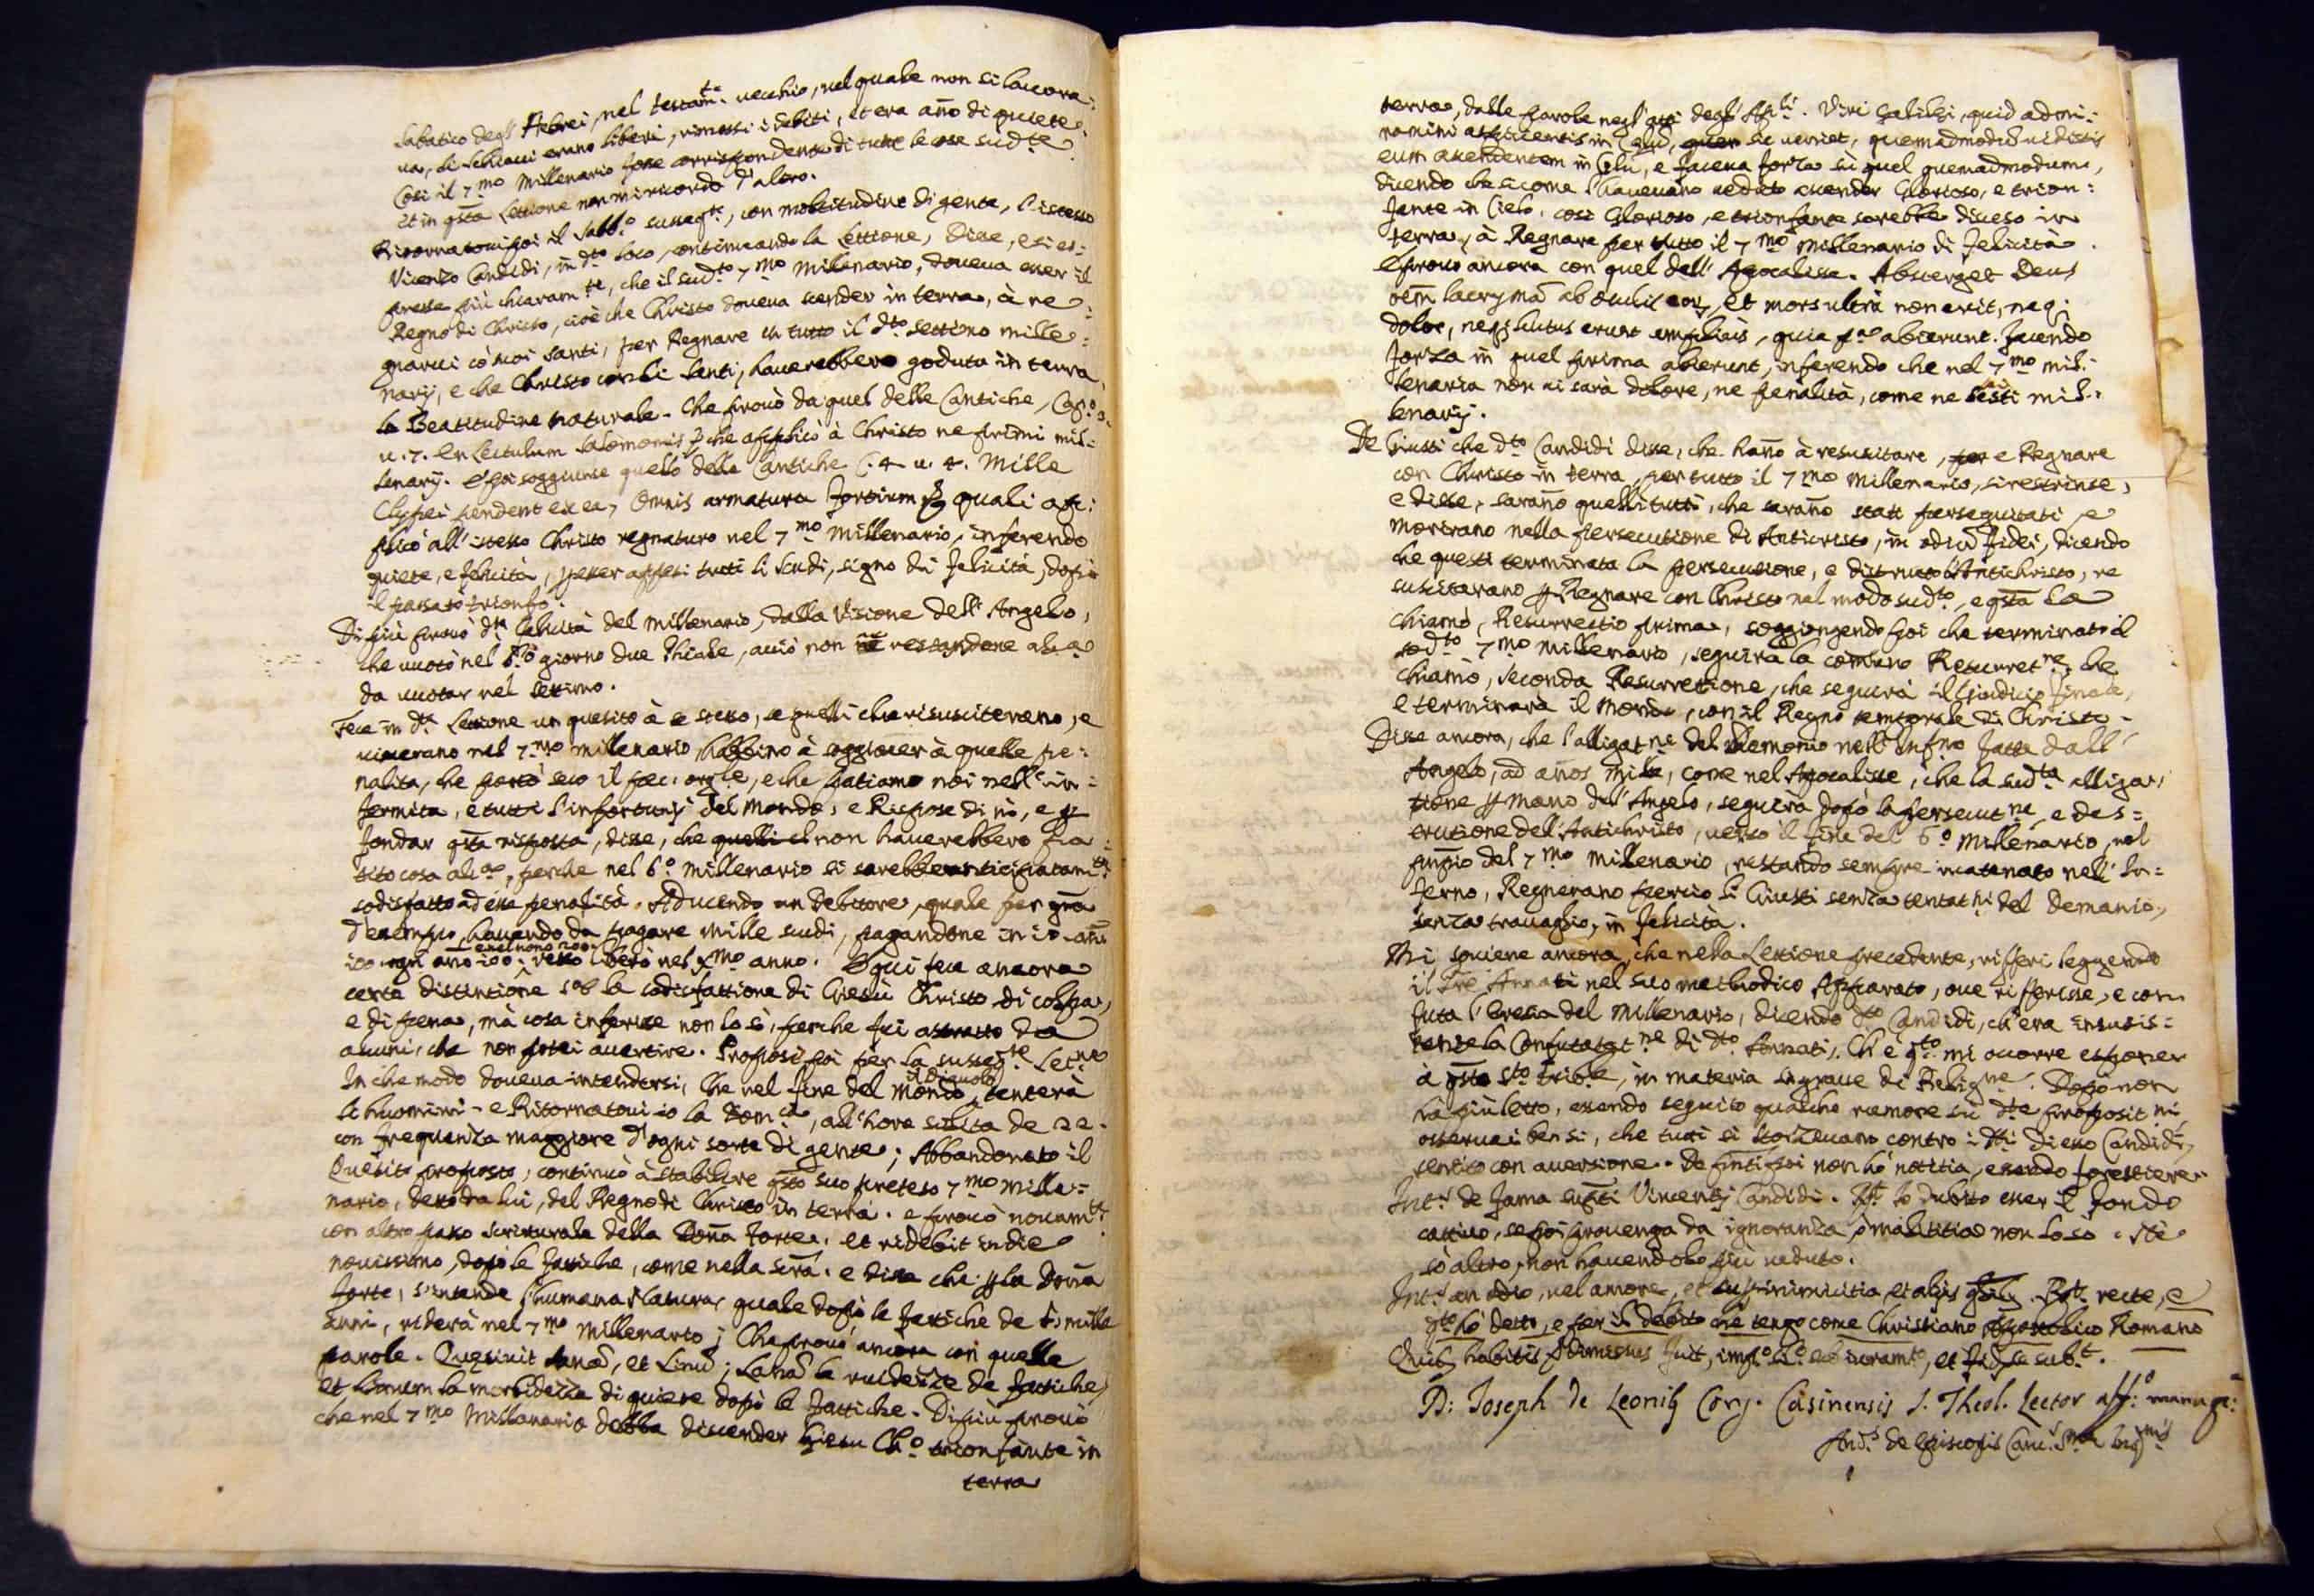 Sabatico degl' Hebrei, nel testam.te vecchio, nel quale non si lavora:
va, li schiavi erano liberi, rimessi i debiti, et era año di quiete.
Cosi il 7.mo Millenario fosse corrispondente di tutte le cose sud.te
Et in q̃sta Lettione non mi ricordo d'altro.
Ritornatovi poi il Sabb.o susseg.te, con moltitudine di gente, l'istesso
Vicenzo Candidi, in d.to loco, continuando la Lettione, Disse, e si es:
presse più chiaram.te, che il sud.to 7.mo Millenario, doveva esser il
Regno di Christo, cioè che Christo doveva scender in terra, à re:
gnarvi co' suoi Santi, per Regnare in tutto il d.to settimo mille:
nary, e che Christo con li Santi, haverebbero goduta in terra,
la Beatitudine naturale. Che provò da quel delle Cantiche, Cap.o 3.
u. 7. En Lectulum Salomonis che applicò à Christo ne primi mil:
lenary. E poi soggiunse quello della Cantiche C. 4. u. 4. Mille
Clypei pendent ex ea, Omnis armatura fortium quali ap:
plicò all' istesso Christo regnaturo nel 7.mo Millenario, inferendo
quiete, e felicità, per esser appesi tutti li scudi, signo di felicità, dopò
il passato trionfo.
Di più provò d.ta felicità del millenario, dalla Visione dell' Angelo,
che vuotò nel 6.to giorno due Phiale, acciò non restandone alc.a
da vuotar nel settimo.
Fece in d.ta Lettione un quesito à se stesso, se quelli che risusciterano, e
viverano nel 7.mo millenario, habbino à soggiacer à quelle pe:
nalita, che portò seco il pec: orig.le, e che patiamo noi nell' in:
fermita, e tutti l'infortunij del Mondo, e Rispose di nò, e p
fondar q̃sta risposta, disse, che quelli non haverebbero pa:
tito cosa alc.a, perche nel 6.o millenario si sarebbe anticipatam.te
sodisfatto ad esse penalità. Adducendo un Debitore, quale per gra
d'esempio, havendo da pagare mille scudi, pagandone in 10 anni
100 ogni ano 100, e nel nono 200 resto libero nel Xmo anno. E qui fece ancora
certa distintione sob la sodisfattione di Giesù Christo di colpa,
e di pena, mà cosa inferisse non lo sò, perche fui astratto da
alcuni, che non potei avertire. Proposi poi per la susseg.te Lec.ne
In che modo doveva intendersi, che nel fine del Mondo, il Diavolo tenterà
li huomini. e Ritornatovi io la Dom.ca, all' hore solita de 22.
con frequenza maggiore d'ogni sorte di gente; Abbandonato il
Quesito proposto, continuò à stabilire q̃sto suo preteso 7.mo Mille:
nario, detto da lui, del Regno di Christo in terra. e provò novam.te
con altro passo scritturale della Doña forte, et ridebit in die
novissimo, dopò le fattiche, come nella será. e disse che p la Doña
forte, s'intende l'humana Natura, quale dopò le fattiche de 6: milla
anni, riderà nel 7.mo Millenario; Che provò ancora con quelle
parole. Quesivit lanã, et Linũ; Lanã le ruidezze de fattiche,
et linum la morbidezza di quiete dopò le fattiche. Di più provò
che nel 7.mo Millenario debba discender Giesu Ch.o trionfante in
terra
terra, dalle parole negl' atti degl' Ap.li. Viri Galilei, quid admi:
ramini aspicientes in Cælũ, sic veniet, quemadmodũ vidistis
eum ascendentem in Cælũ, e faceva forza sù quel quemadmodum,
dicendo che sicome l'havevano veduto ascender Glorioso, e trion:
fante in Cielo, cosi Glorioso, e trionfante sarebbe disceso in
terra, à Regnare per tutto il 7.mo millenario di felicità.
E provò ancora con quel dell' Apocalisse. Absterget Deus
oẽm lacrymã ab oculis eor, et mors ultrà non erit, neq;
dolor, neq; luctus erunt amplius, quia p.a abierunt. facendo
forza in quel prima abierunt, inferendo che nel 7.mo mil:
lenario non vi sarà dolore, ne penalità, come ne sesti mil:
lenarij.
De Giusti che d.to Candidi disse, che hano à resuscitare, e Regnare
con Christo in terra, per tutto il 7.mo Millenario, si restrinse,
e disse, sarano quelli tutti, che sarano stati perseguitati, e
morirano nella persecutione di Antichristo, in odiũ fidei, dicendo
che questi terminata la persecutione, e distrutto l'Antichristo, re
suscitarano p Regnare con Christo nel modo sud.to, e q̃sta la
chiamò, Resurrectio prima, soggiongendo poi che terminato il
sod.to 7.mo Millenario, seguirà la comune Resurret.ne, che
chiamò, seconda Resurrettione, che seguirà il Giudicio finale,
e terminarà il Mondo, con il Regno temporale di Christo.
Disse ancora, che l'alligat.ne del Demonio nell' Inf.no fatta dall'
Angelo, ad anos mille, come nel Apocalisse, che la sud.ta alliga:
tione p mano dell' Angelo, seguirà dopò la persecut.ne, e des=
trutione dell' Antichristo, verso il fine del 6.o Millenario, nel
punpio del 7.mo Millenario, restando sempre incatenato nell' In=
ferno, Regnerano perciò li Giusti senza tentat.ni del Demonio,
senza travaglio, in felicità.
Mi soviene ancora, che nella Lettione precedente, rifferi leggendo
il Frè Annati nel suo methodico Apparato, ove rifferisse, e con
futa l'Eresia del Millenario, dicendo d.to Candidi, ch'era insusis=
tente la Confutat.ne di d.to Annati. Ch'è q.to mi occorre esponer
à q̃sto S.to Trib.le, in materia sì grave di Relig.ne. Dopò non
hà più letto, essendo seguito qualche rumore sù d.te proposit.ni
osservai ben si, che tutti si storcevano contro i d.ti di esso Candidi,
sentito con aversione. De fini poi non hò notitia, essendo forestiere.
Int.s de fama sup.ti Vincentij Candidi. R.t lo dubito esser il fondo
cattivo, se poi provenga da ignoranza ò malitia non lo sò. Nè
sò altro, non havendolo più veduto.
Int.s an odio, vel amore, et inimicitia et alijs R.t recte, e
q.to hò detto, e per il debito che tengo come Christiano Apostolico Romano
Quib; habitis dimissus fuit, imp.o si.o sub iuram.to, et se sub.t.
D: Joseph de Leonib; Cong. Casinensis S. Theol. Lector aff:o manu pp.a
And.s de Episcopis Canc.s